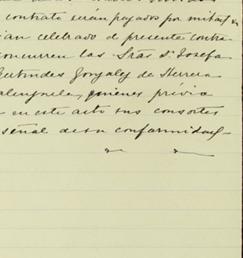 contrato serán pagados por mitad
celebrado el presente contra
concurren las Sras Da. Josefa
Gertrudes Gonzalez de Herrera
Valenzuela, quienes prévia
en este acto sus consortes
señal de su conformidad